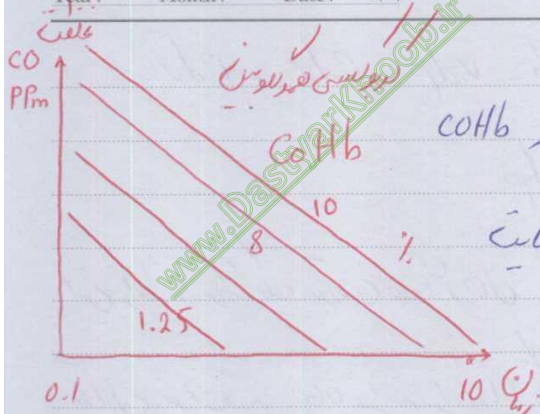 غلظت
CO
PPm
کربوکسی هموگلوبین
CoHb
COHb
10
8
%
1.25
0.1
10
زمان
www.DastyarKonkoob.ir